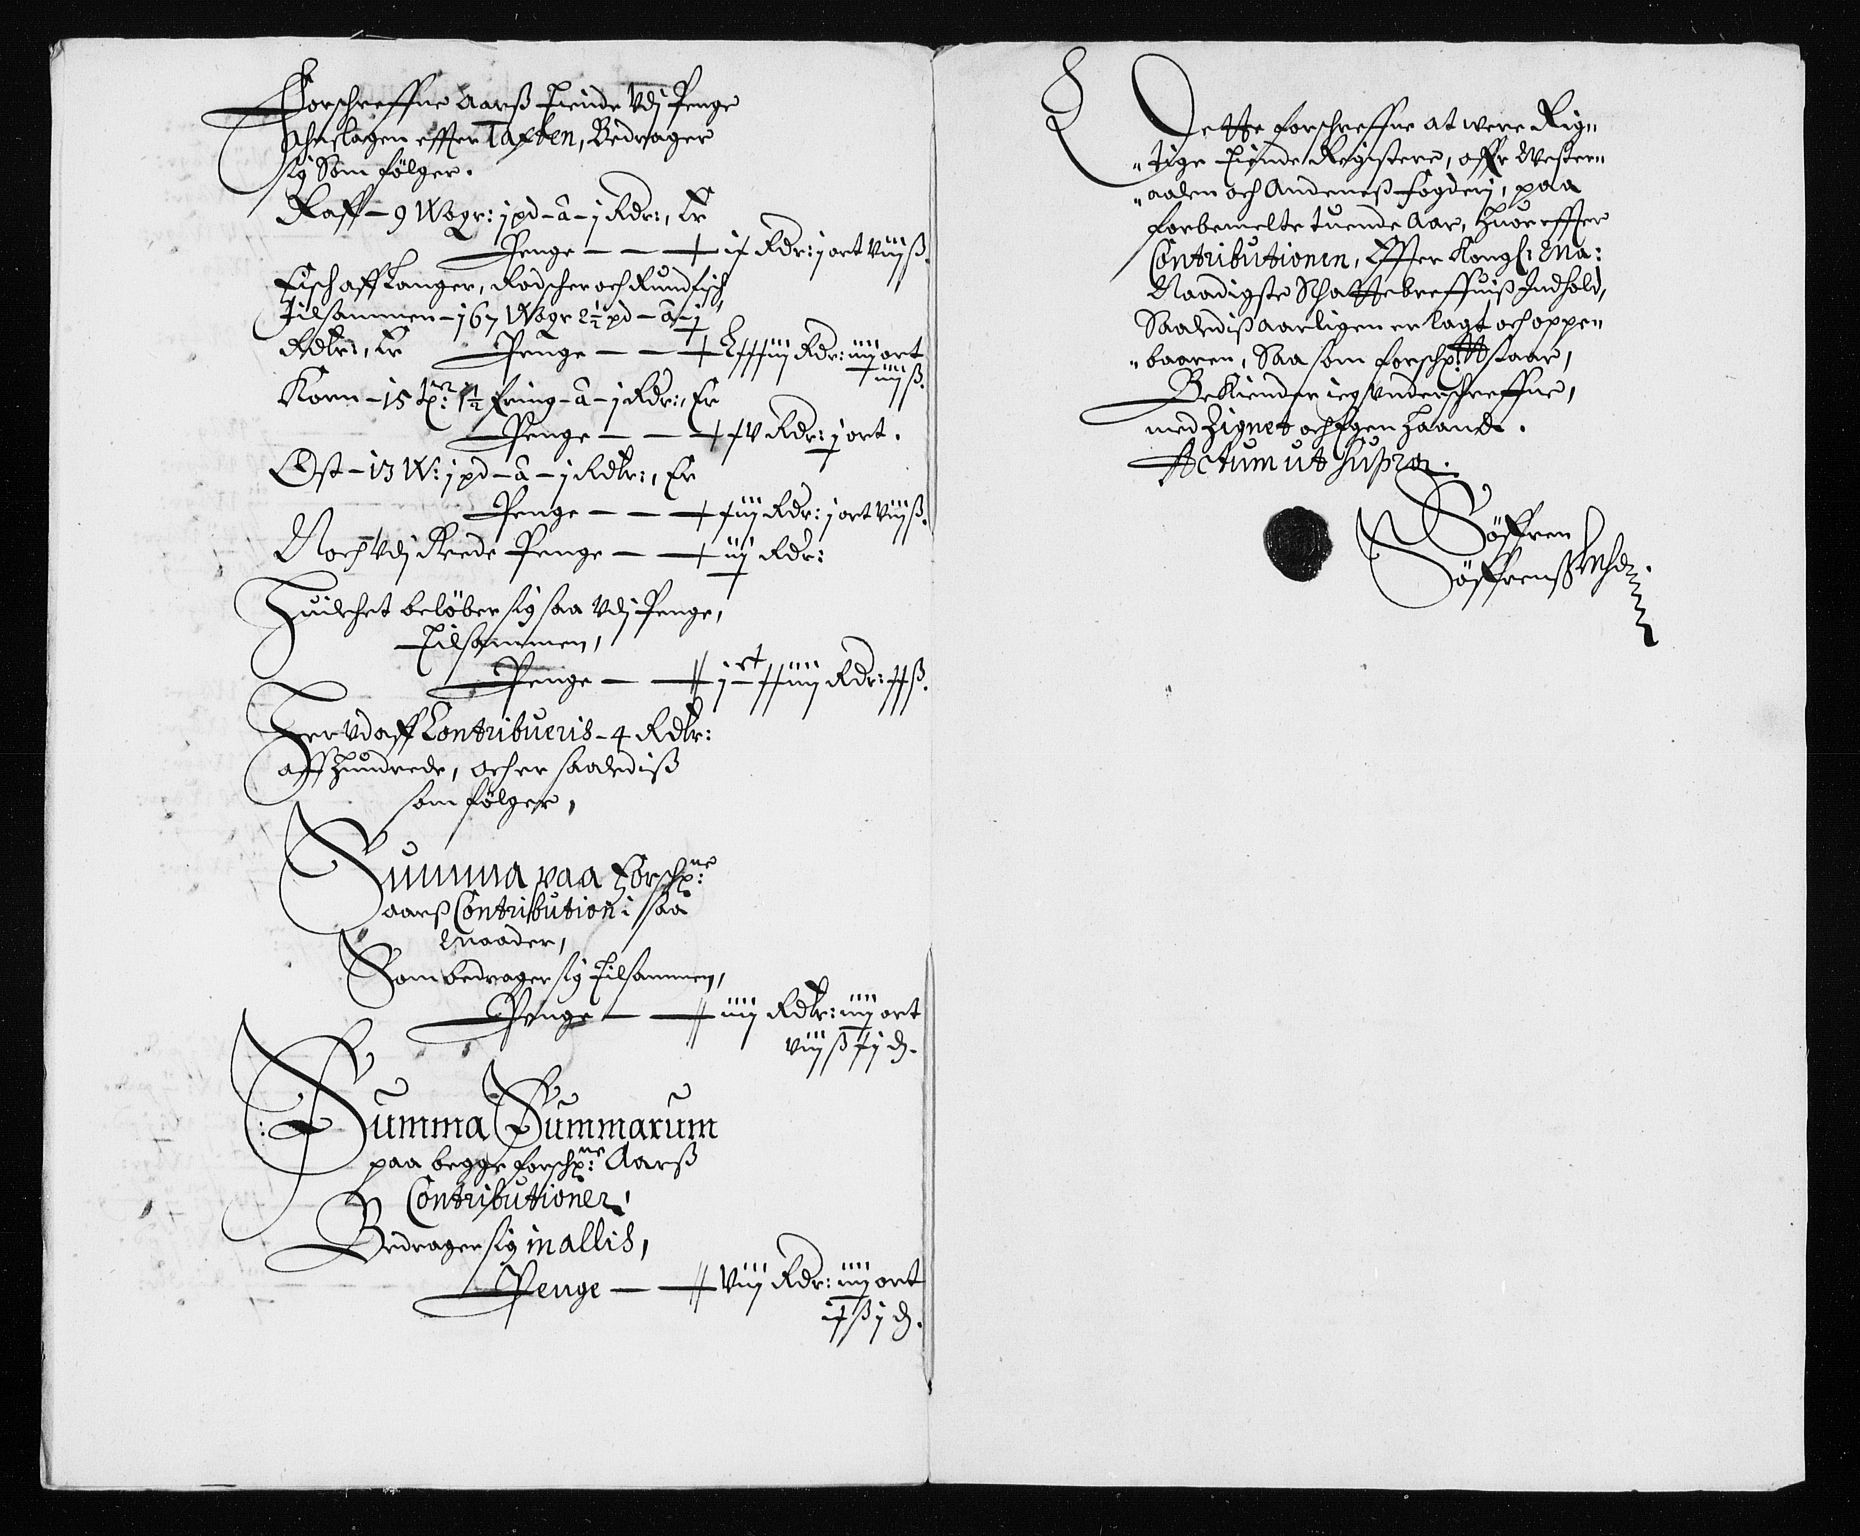 Forschreffne Aarß Tiende Vdj Penge
Ahnslagen effter Taxten, Bedrager
sig Som følger.
Raff – 9 Wogr: j pd – â – j Rdr:, Er
Penge — — ix Rdr: j ort viij ß.
Fisch aff Langer, Rodscher och Rundfisch
Tilsammen – 167 Wogr 2½ pd – â – j
Rdlr:, Er Penge — — Lxxxiij Rdr: iiij ort
xiiij ß.
Korn – 15 tp:nr 1½ Fring – â – j Rdr:, Er
Penge — — xv Rdr: j ort.
Ost – 13 W: j pd – â – j Rdlr:, Er
Penge — — xiij Rdr: j ort viij ß.
Noch Vdj Rede Penge — — iij Rdr:
Huilchet beløber sig saa Vdj Penge,
Tilsammen,
Penge — — jct xxiiij Rdr: xx ß.
Her Vdaff Contribueris – 4 Rdlr:
aff Hundrede, och er saaledis
som følger,
Summa paa Forschp:ne
aarß Contribution i saa
Maader,
Som bedrager sig Tilsammen,
Penge — — iiij Rdlr: iiij ort
viij ß xj d.
Summa Summarum
paa begge forschp:ne Aarß
Contributioner,
Bedrager sig in allis,
Penge — — viij Rdr: iiij ort
ix ß j d.
Dette forschreffne at were Rig„
„tige Tiende Registere, offr Wester„
„aalen och Andeneß fogderj, paa
forbemelte tuende Aar, Huor effter
Contributionen, Effter Kongl: Ma:
Naadigste Schattebreffuiß Indhold,
Saalediß aarligen er lagt och oppe„
„baaren, Saa som forschp:tt staar,
Bekiender ieg Vnderschreffne,
med Zignet och Egen Haandt.
Actum ut supra.
Søffren
Søffrenß